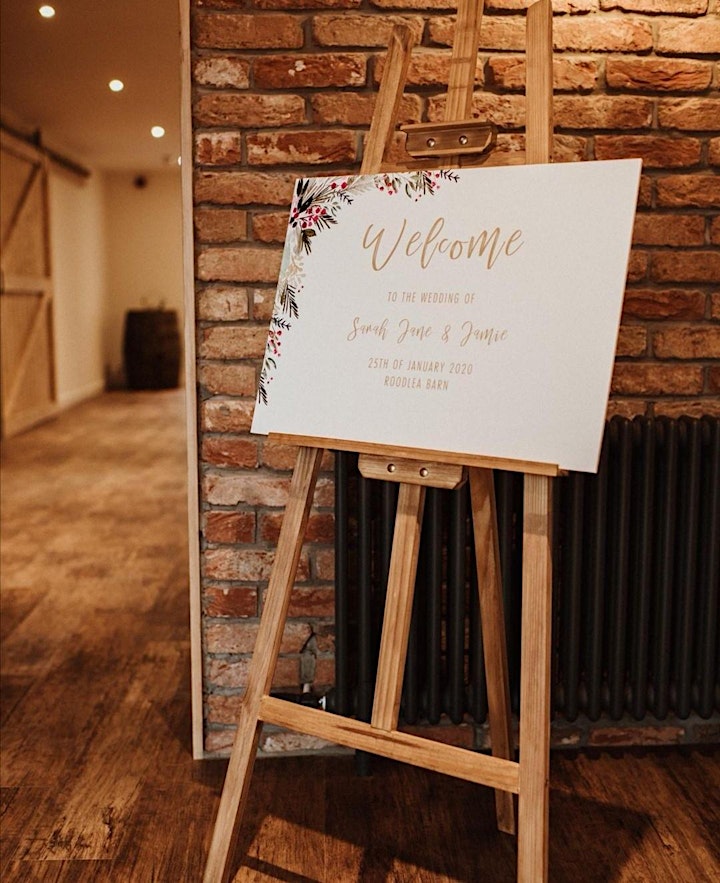 Welcome
TO THE WEDDING OF
Sarah Jane & Jamie
25TH OF JANUARY 2020
ROODLEA BARN